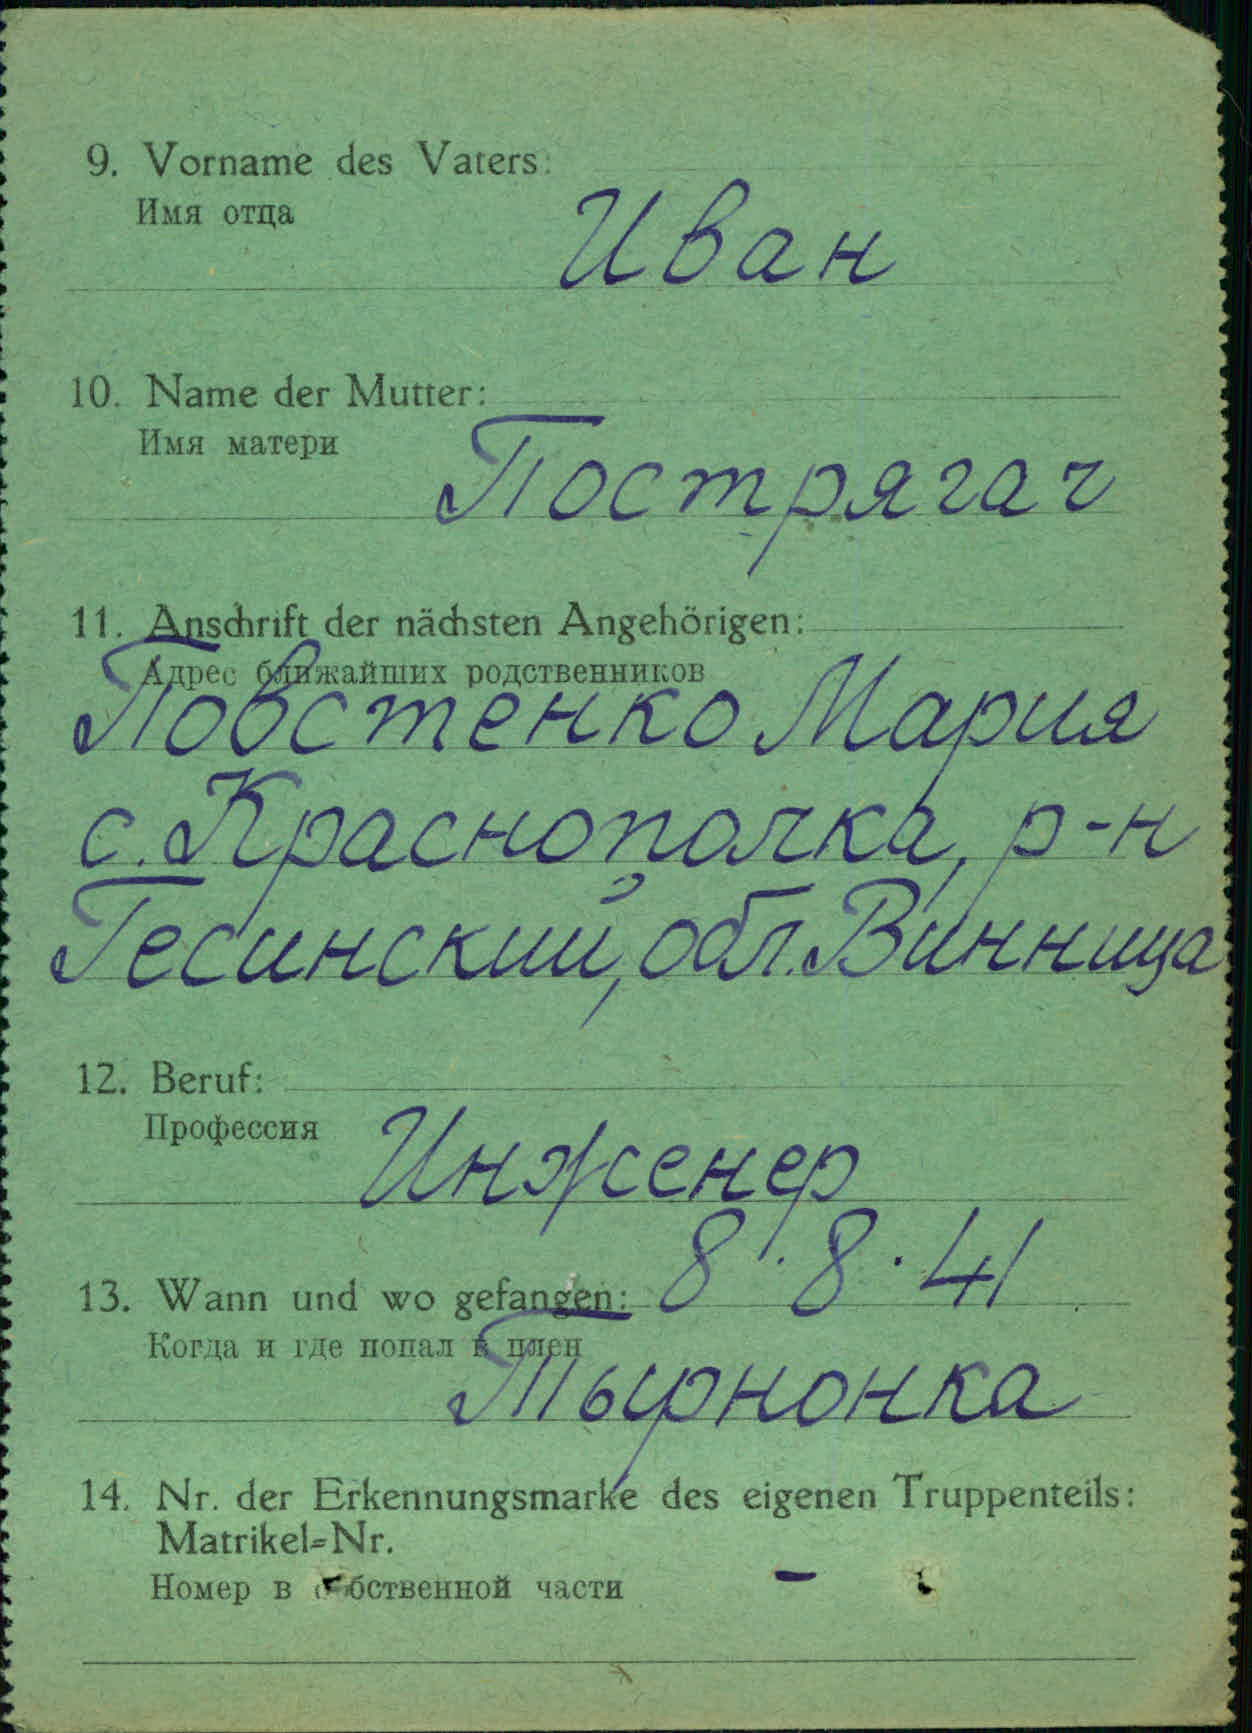 9. Vorname des Vaters:
Имя отца
Иван
10. Name der Mutter:
Имя матери
Пострягач
11. Anschrift der nächsten Angehörigen:
Адрес ближайших родственников
Повстенко Мария
с. Краснополка, р-н
Гесинский, обл. Винница
12. Beruf:
Профессия
Инженер
13. Wann und wo gefangen: 8.8.41
Когда и где попал в плен
Тырнонка
14. Nr. der Erkennungsmarke des eigenen Truppenteils:
Matrikel=Nr.
Номер в собственной части -